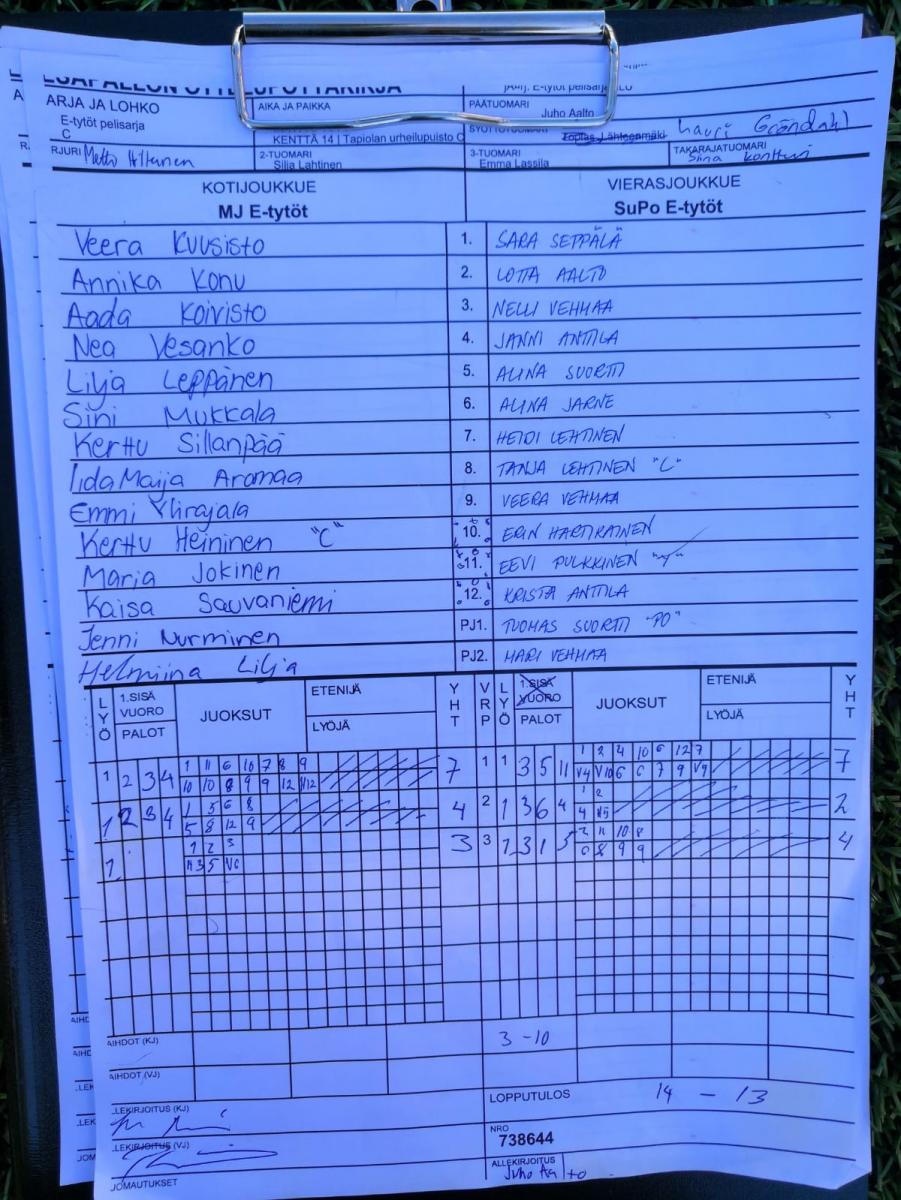 ARJA JA LOHKO
E-tytöt pelisarja
C
AIKA JA PAIKKA
KENTTÄ 14 | Tapiolan urheilupuisto C
PÄÄTUOMARI
Juho Aalto
Lauri Gröndahl
RJURI
2-TUOMARI
Silja Lahtinen
3-TUOMARI
Emma Lassila
TAKARAJATUOMARI
Siina Kontturi
KOTIJOUKKUE VIERASJOUKKUE
MJ E-tytöt SuPo E-tytöt
Veera Kuusisto 1. SARA SEPPÄLÄ
Annika Konu 2. LOTTA AALTO
Aada Koivisto 3. NELLI VEHMAA
Nea Vesanko 4. JANNI ANTTILA
Lilja Leppänen 5. ALINA SUORTTI
Sini Mukkala 6. ALINA JARNE
Kerttu Sillanpää 7. HEIDI LEHTINEN
Iida Maija Aromaa 8. TANJA LEHTINEN "C"
Emmi Ylirajala 9. VEERA VEHMAA
Kerttu Heininen "C" 10. ERIN HARTIKAINEN
Maria Jokinen 11. EEVI PULKKINEN
Kaisa Sauvaniemi 12. KRISTA ANTTILA
Jenni Nurminen PJ1. TUOMAS SUORTTI "PO"
Helmiina Lilja PJ2. MARI VEHMAA
LYÖ 1.SISÄ VUORO PALOT JUOKSUT ETENIJÄ LYÖJÄ YHT VRP LYÖ 1.SISÄ VUORO PALOT JUOKSUT ETENIJÄ LYÖJÄ YHT
1 11 6 10 7 8 9 1 2 4 10 6 12 7
1 2 3 4 10 10 8 9 9 12 V12 7 1 1 3 5 11 V4 V10 6 6 7 9 V9 7
1 5 6 8 1 2
1 2 3 4 5 8 12 9 4 2 1 3 6 4 4 V5 2
1 2 3 2 11 10 8
1. 3 5 V6 3 3 1 3 1 5 6 8 9 9 4
AIHDOT (KJ) 3 -10
AIHDOT (VJ)
LEKIRJOITUS (KJ) LOPPUTULOS 14 - 13
LEKIRJOITUS (VJ) NRO
738644
ALLEKIRJOITUS
Juho Aalto
JOMAUTUKSET